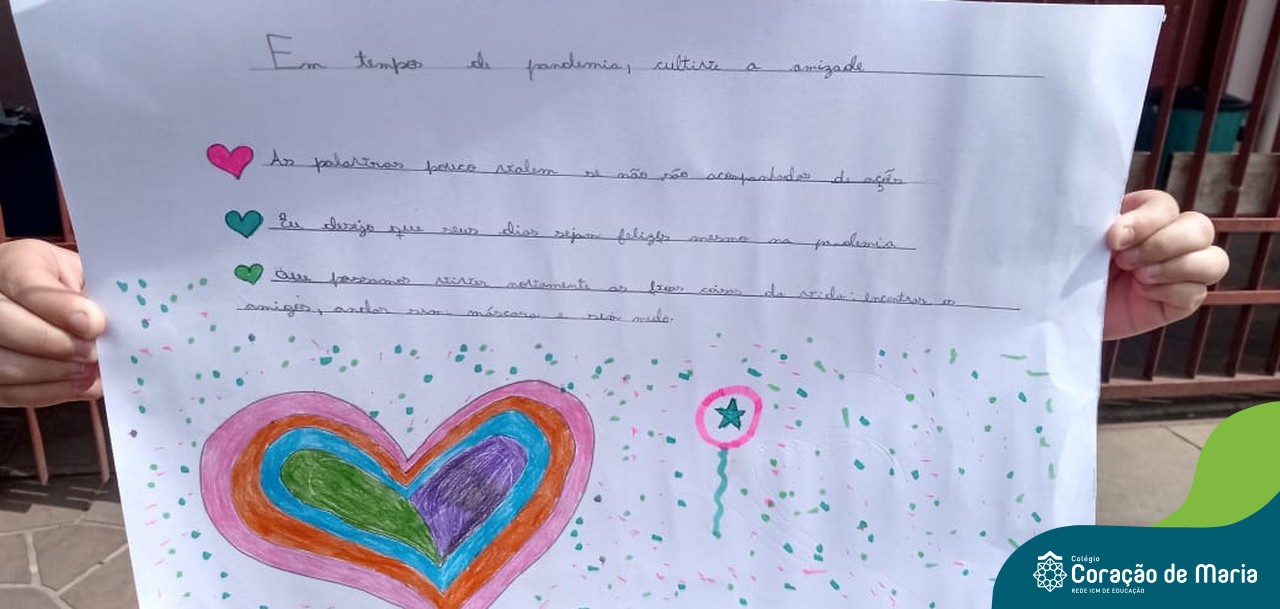 Em tempos de pandemia, cultive a amizade
As palavras pouco valem se não são acompanhadas de ação
Eu desejo que seus dias sejam felizes mesmo na pandemia
Que possamos viver novamente as boas coisas da vida: encontrar os
amigos, andar sem máscara e sem medo.
Colégio
Coração de Maria
REDE ICM DE EDUCAÇÃO